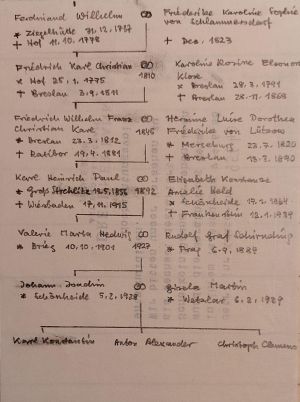 Ferdinand Wilhelm ∞ Friederike Karoline Sophie
von Schlammersdorf
* Ziegelhütte 31.12.1717
+ Hof 11.10.1778 + Dez. 1823
Friedrich Karl Christian ∞ Karoline Rosine Eleonore
Klose
* Hof 25.1.1775 1810 * Breslau 28.3.1791
+ Breslau 3.9.1811 + Breslau 28.11.1863
Friedrich Wilhelm Franz ∞ Hermine Luise Dorothea
Christian Karl 1845 Friederike von Lützow
* Breslau 23.3.1812 * Merseburg 23.7.1820
+ Ratibor 19.4.1881 + Breslau 13.3.1890
Karl Heinrich Paul ∞ Elisabeth Konstanze
Amalie Held
* Groß Strehlitz 1856 1892 * Schönheide 1864
+ Wiesbaden 17.11.1915 + Frankenstein 12.1.1939
Valerie Marta Hedwig ∞ Rudolf Graf Schirnding
* Brieg 10.10.1901 1927 * Prag 6.9.1889
Johann Joachim ∞ Gisela Martin
* Schönheide 5.2.1928 * Wetzlar 6.2.1929
Karl Konstantin Anton Alexander Christoph Clemens